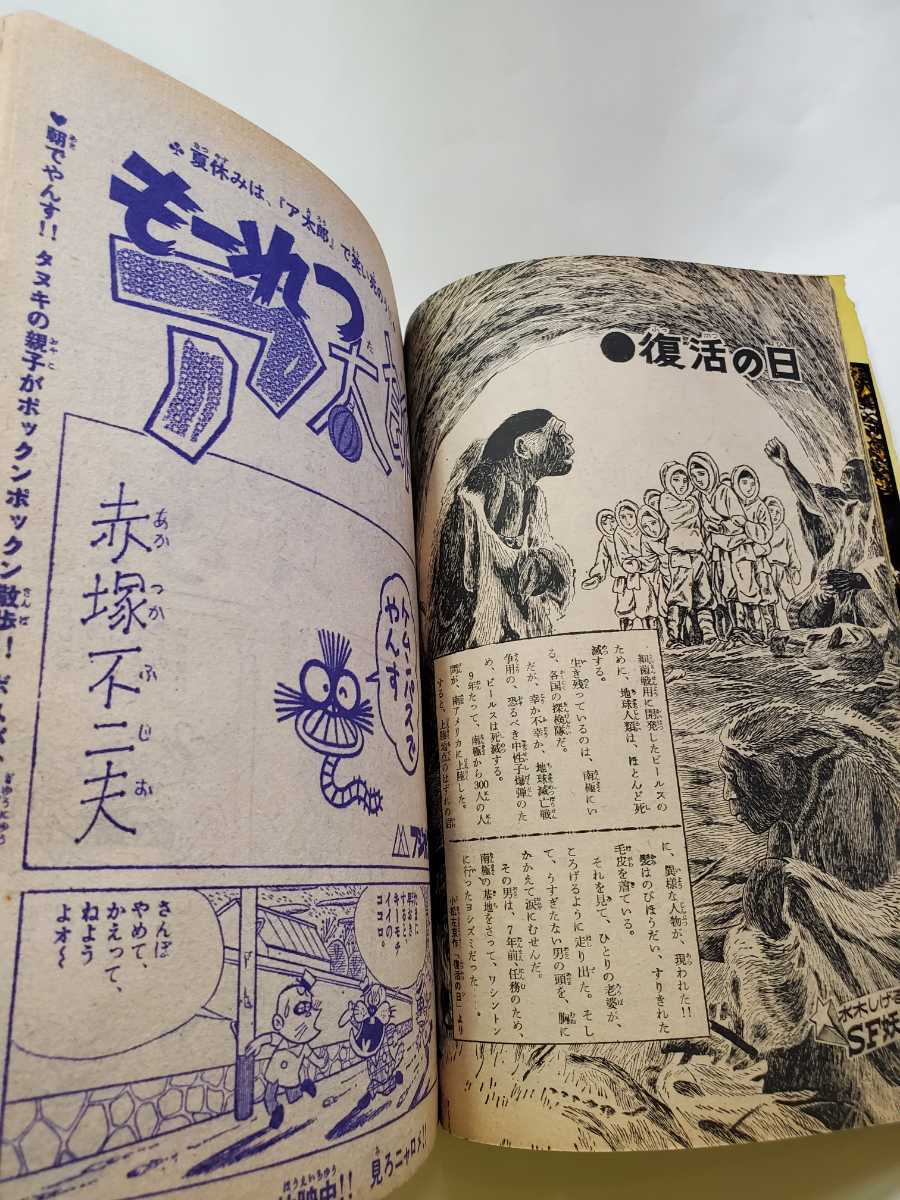 ●復活の日
ふっかつ
細菌戦用に開発したビールスの
ために、地球人類は、ほとんど死
滅する。
生き残っているのは、南極にい
る、各国の探検隊だ。
だが、幸か不幸か、地球滅亡戦
争用の、恐るべき中性子爆弾のた
め、ビールスは死滅する。
9年たって、南極から300人の人
間が、南アメリカに上陸した。
すると、上陸地点のはずれの
に、異様な人物が、現われた!!
髪はのびほうだい、すりきれた
毛皮を着ている。
それを見て、ひとりの老婆が、
ころげるように走り出た。そし
て、うすぎたない男の頭を、胸に
かかえて涙にむせんだ。
その男は、7年前、任務のため、
南極の基地をさって、ワシントン
に行ったヨシズミだった……。
小松左京作「復活の日」より
水木しげる
SF妖
✤夏休みは、『ア太郎』で笑い死の
もーれつ
ア太郎
赤塚不二夫
あかつかふじお
トムこバスで
やんす
フジ
♥朝でやんす!!タヌキの親子がポックンポックン散歩!
ぎゅうにゅう
イイの
ココロ
さんぽ
やめて、
かえって、
ねよう
よォ〜
ほうえいちゅう
映中!!見ろニャロメ!!